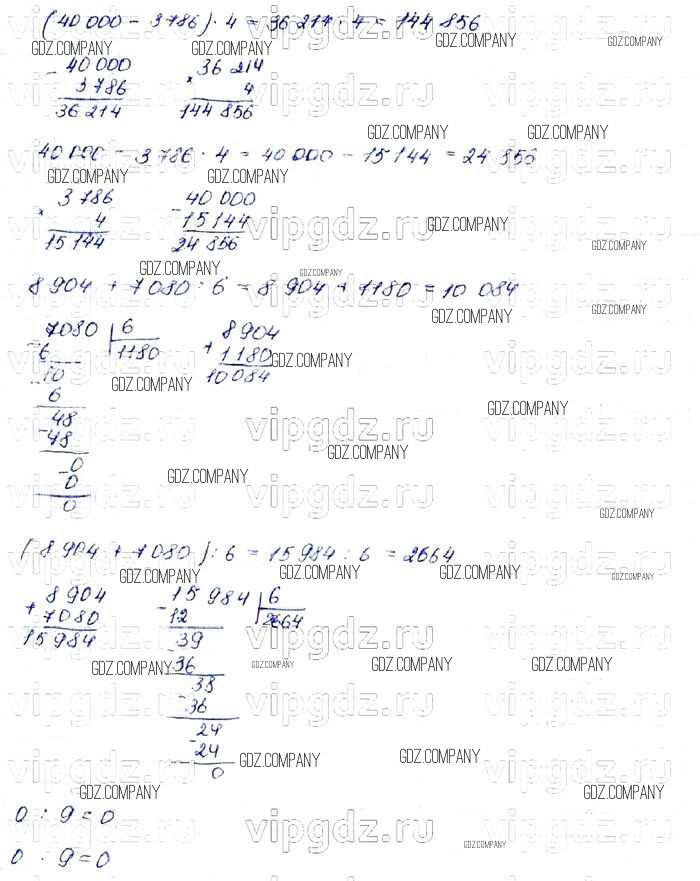 (40 000 - 3 786) · 4 = 36 214 · 4 = 144 856
GDZ.COMPANY GDZ.COMPANY GDZ.COMPANY
- 40 000 × 36 214
3 786 4
36 214 144 856
vipgdz.ru vipgdz.ru vipgdz.ru
GDZ.COMPANY GDZ.COMPANY
40 000 - 3 786 · 4 = 40 000 - 15 144 = 24 856
GDZ.COMPANY GDZ.COMPANY GDZ.COMPANY
× 3 786 - 40 000
4 15 144
15 144 24 856
vipgdz.ru vipgdz.ru vipgdz.ru
GDZ.COMPANY GDZ.COMPANY
GDZ.COMPANY GDZ.COMPANY
8 904 + 7 080 : 6 = 8 904 + 1180 = 10 084
GDZ.COMPANY GDZ.COMPANY
- 7080 6 8 904
6 1180 + 1 180
- 10 10 084
vipgdz.ru vipgdz.ru vipgdz.ru
GDZ.COMPANY GDZ.COMPANY
6
GDZ.COMPANY
48
- 48
vipgdz.ru vipgdz.ru vipgdz.ru
GDZ.COMPANY
- 0
GDZ.COMPANY
0
0
vipgdz.ru vipgdz.ru vipgdz.ru
GDZ.COMPANY
(8 904 + 7 080) : 6 = 15 984 : 6 = 2664
GDZ.COMPANY GDZ.COMPANY GDZ.COMPANY GDZ.COMPANY
8 904 15 984 6
+ 7080 - 12 2664
15 984 39
vipgdz.ru vipgdz.ru vipgdz.ru
- 36
GDZ.COMPANY GDZ.COMPANY GDZ.COMPANY GDZ.COMPANY
38
- 36
vipgdz.ru vipgdz.ru vipgdz.ru
24
- 24
0
GDZ.COMPANY GDZ.COMPANY GDZ.COMPANY
vipgdz.ru vipgdz.ru vipgdz.ru
GDZ.COMPANY GDZ.COMPANY GDZ.COMPANY
0 : 9 = 0
vipgdz.ru vipgdz.ru vipgdz.ru
GDZ.COMPANY
0 · 9 = 0